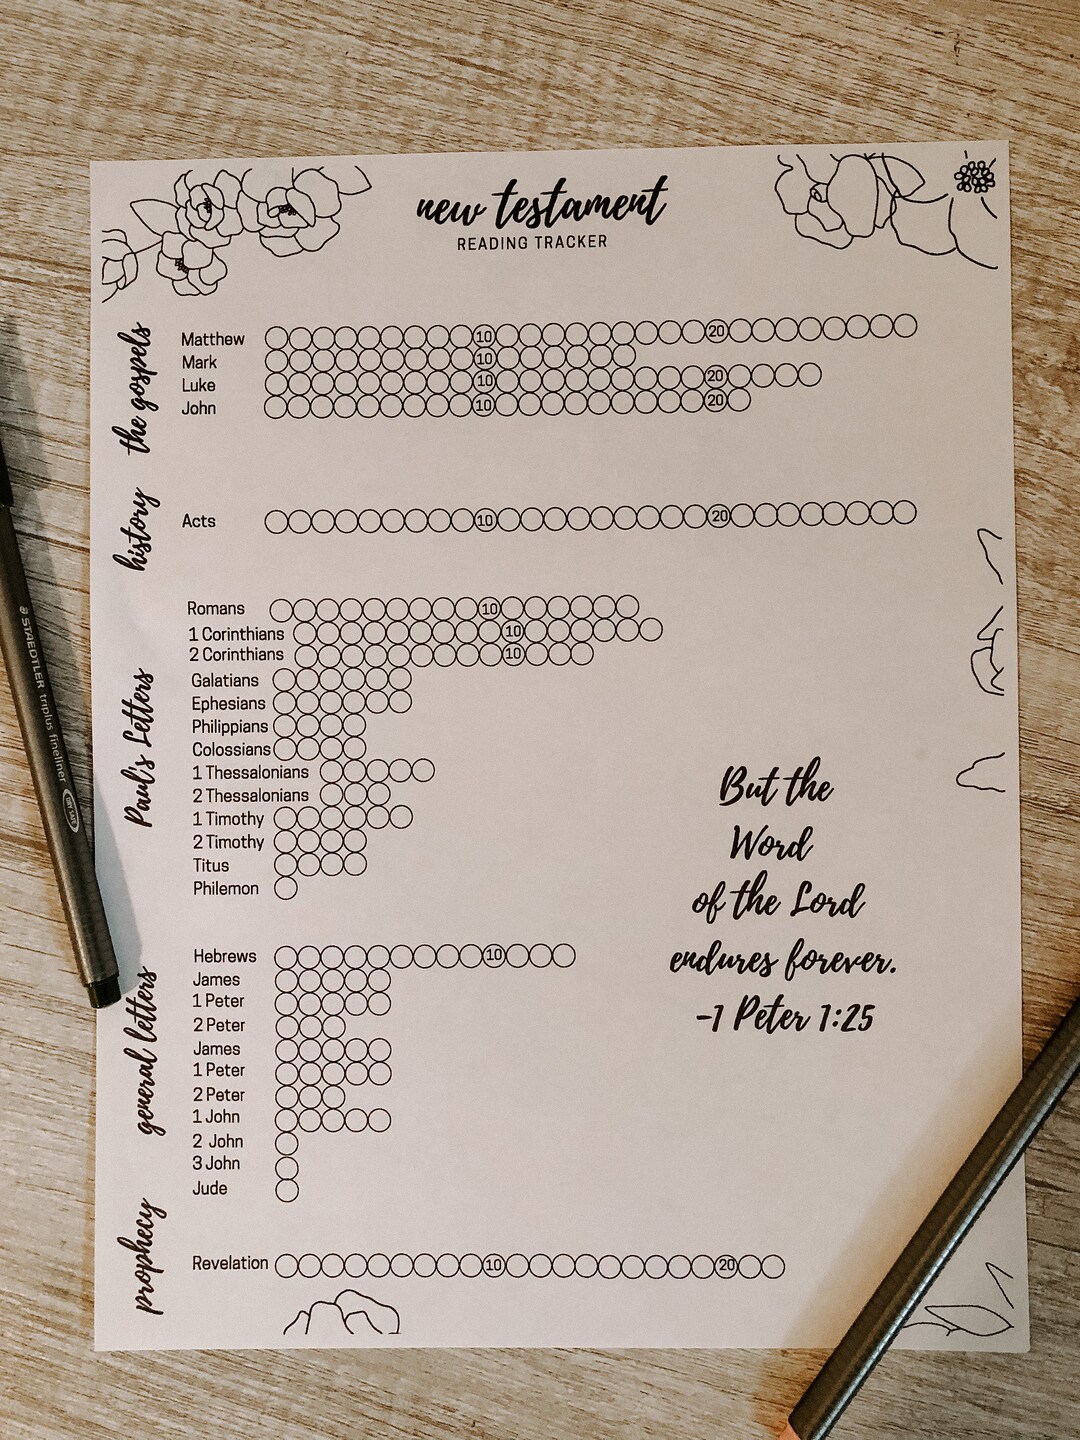 new testament
READING TRACKER
the gospels
Matthew 10 20
Mark 10
Luke 10 20
John 10 20
history
Acts 10 20
Paul's Letters
Romans 10
1 Corinthians 10
2 Corinthians 10
Galatians
Ephesians
Philippians
Colossians
1 Thessalonians
2 Thessalonians
1 Timothy
2 Timothy
Titus
Philemon
general letters
Hebrews 10
James
1 Peter
2 Peter
James
1 Peter
2 Peter
1 John
2 John
3 John
Jude
prophecy
Revelation 10 20
But the
Word
of the Lord
endures forever.
-1 Peter 1:25
STAEDTLER triplus fineliner